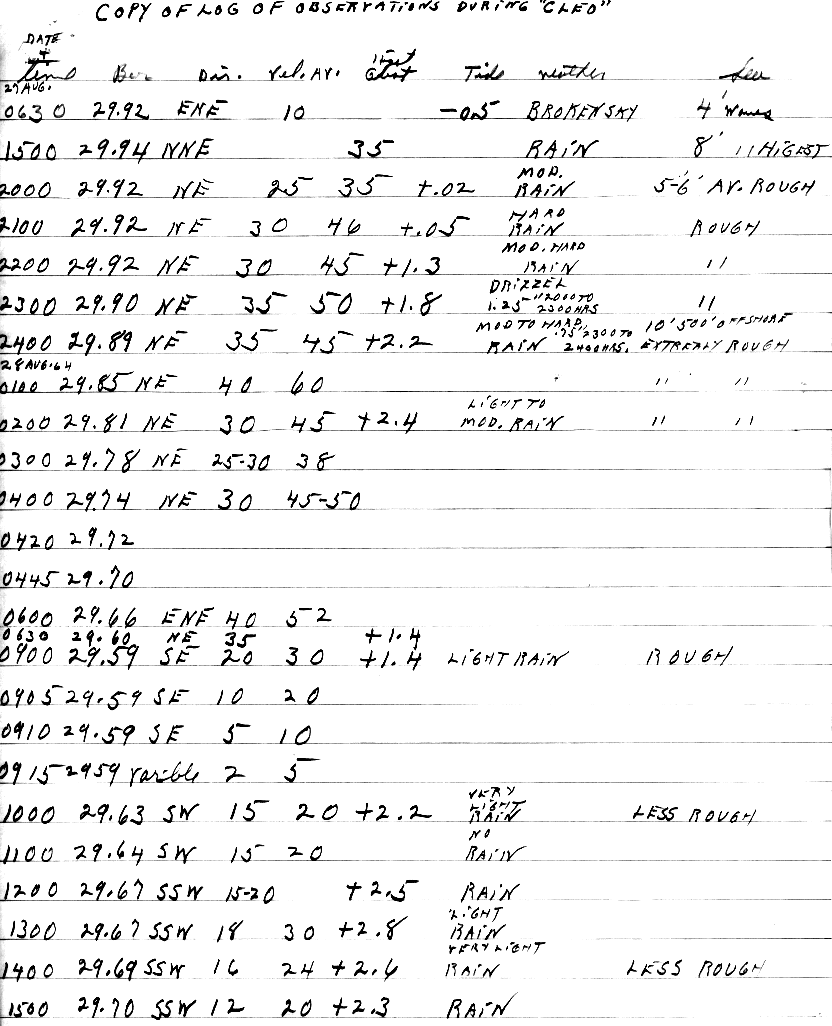 COPY OF LOG OF OBSERVATIONS DURING "CLEO"
DATE
+
time Bar. Dir. Vel. Av. Gust Tide weather Sea
27 AUG.
0630 29.92 ENE 10 -0.5 BROKEN SKY 4' Waves
1500 29.94 NNE 35 RAIN 8' " HIGEST
2000 29.92 NE 25 35 +.02 MOD. RAIN 5-6' AV. ROUGH
2100 29.92 NE 30 46 +.05 HARD RAIN ROUGH
2200 29.92 NE 30 45 +1.3 MOD. HARD RAIN "
2300 29.90 NE 35 50 +1.8 DRIZZEL 1.25" 2000 TO 2300 HRS "
2400 29.89 NE 35 45 +2.2 MOD TO HARD RAIN .75" 2300 TO 2400 HRS. 10' 500' OFFSHORE EXTREALY ROUGH
28 AUG. 64
0100 29.85 NE 40 60 " "
0200 29.81 NE 30 45 +2.4 LIGHT TO MOD. RAIN " "
0300 29.78 NE 25-30 38
0400 29.74 NE 30 45-50
0420 29.72
0445 29.70
0600 29.66 ENE 40 52
0630 29.60 NE 35 +1.4
0900 29.59 SE 20 30 +1.4 LIGHT RAIN ROUGH
0905 29.59 SE 10 20
0910 29.59 SE 5 10
0915 2959 Varible 2 5
1000 29.63 SW 15 20 +2.2 VERY LIGHT RAIN LESS ROUGH
1100 29.64 SW 15 20 NO RAIN
1200 29.67 SSW 15-20 +2.5 RAIN
1300 29.67 SSW 18 30 +2.8 LIGHT RAIN
1400 29.69 SSW 16 24 +2.6 VERY LIGHT RAIN LESS ROUGH
1500 29.70 SSW 12 20 +2.3 RAIN